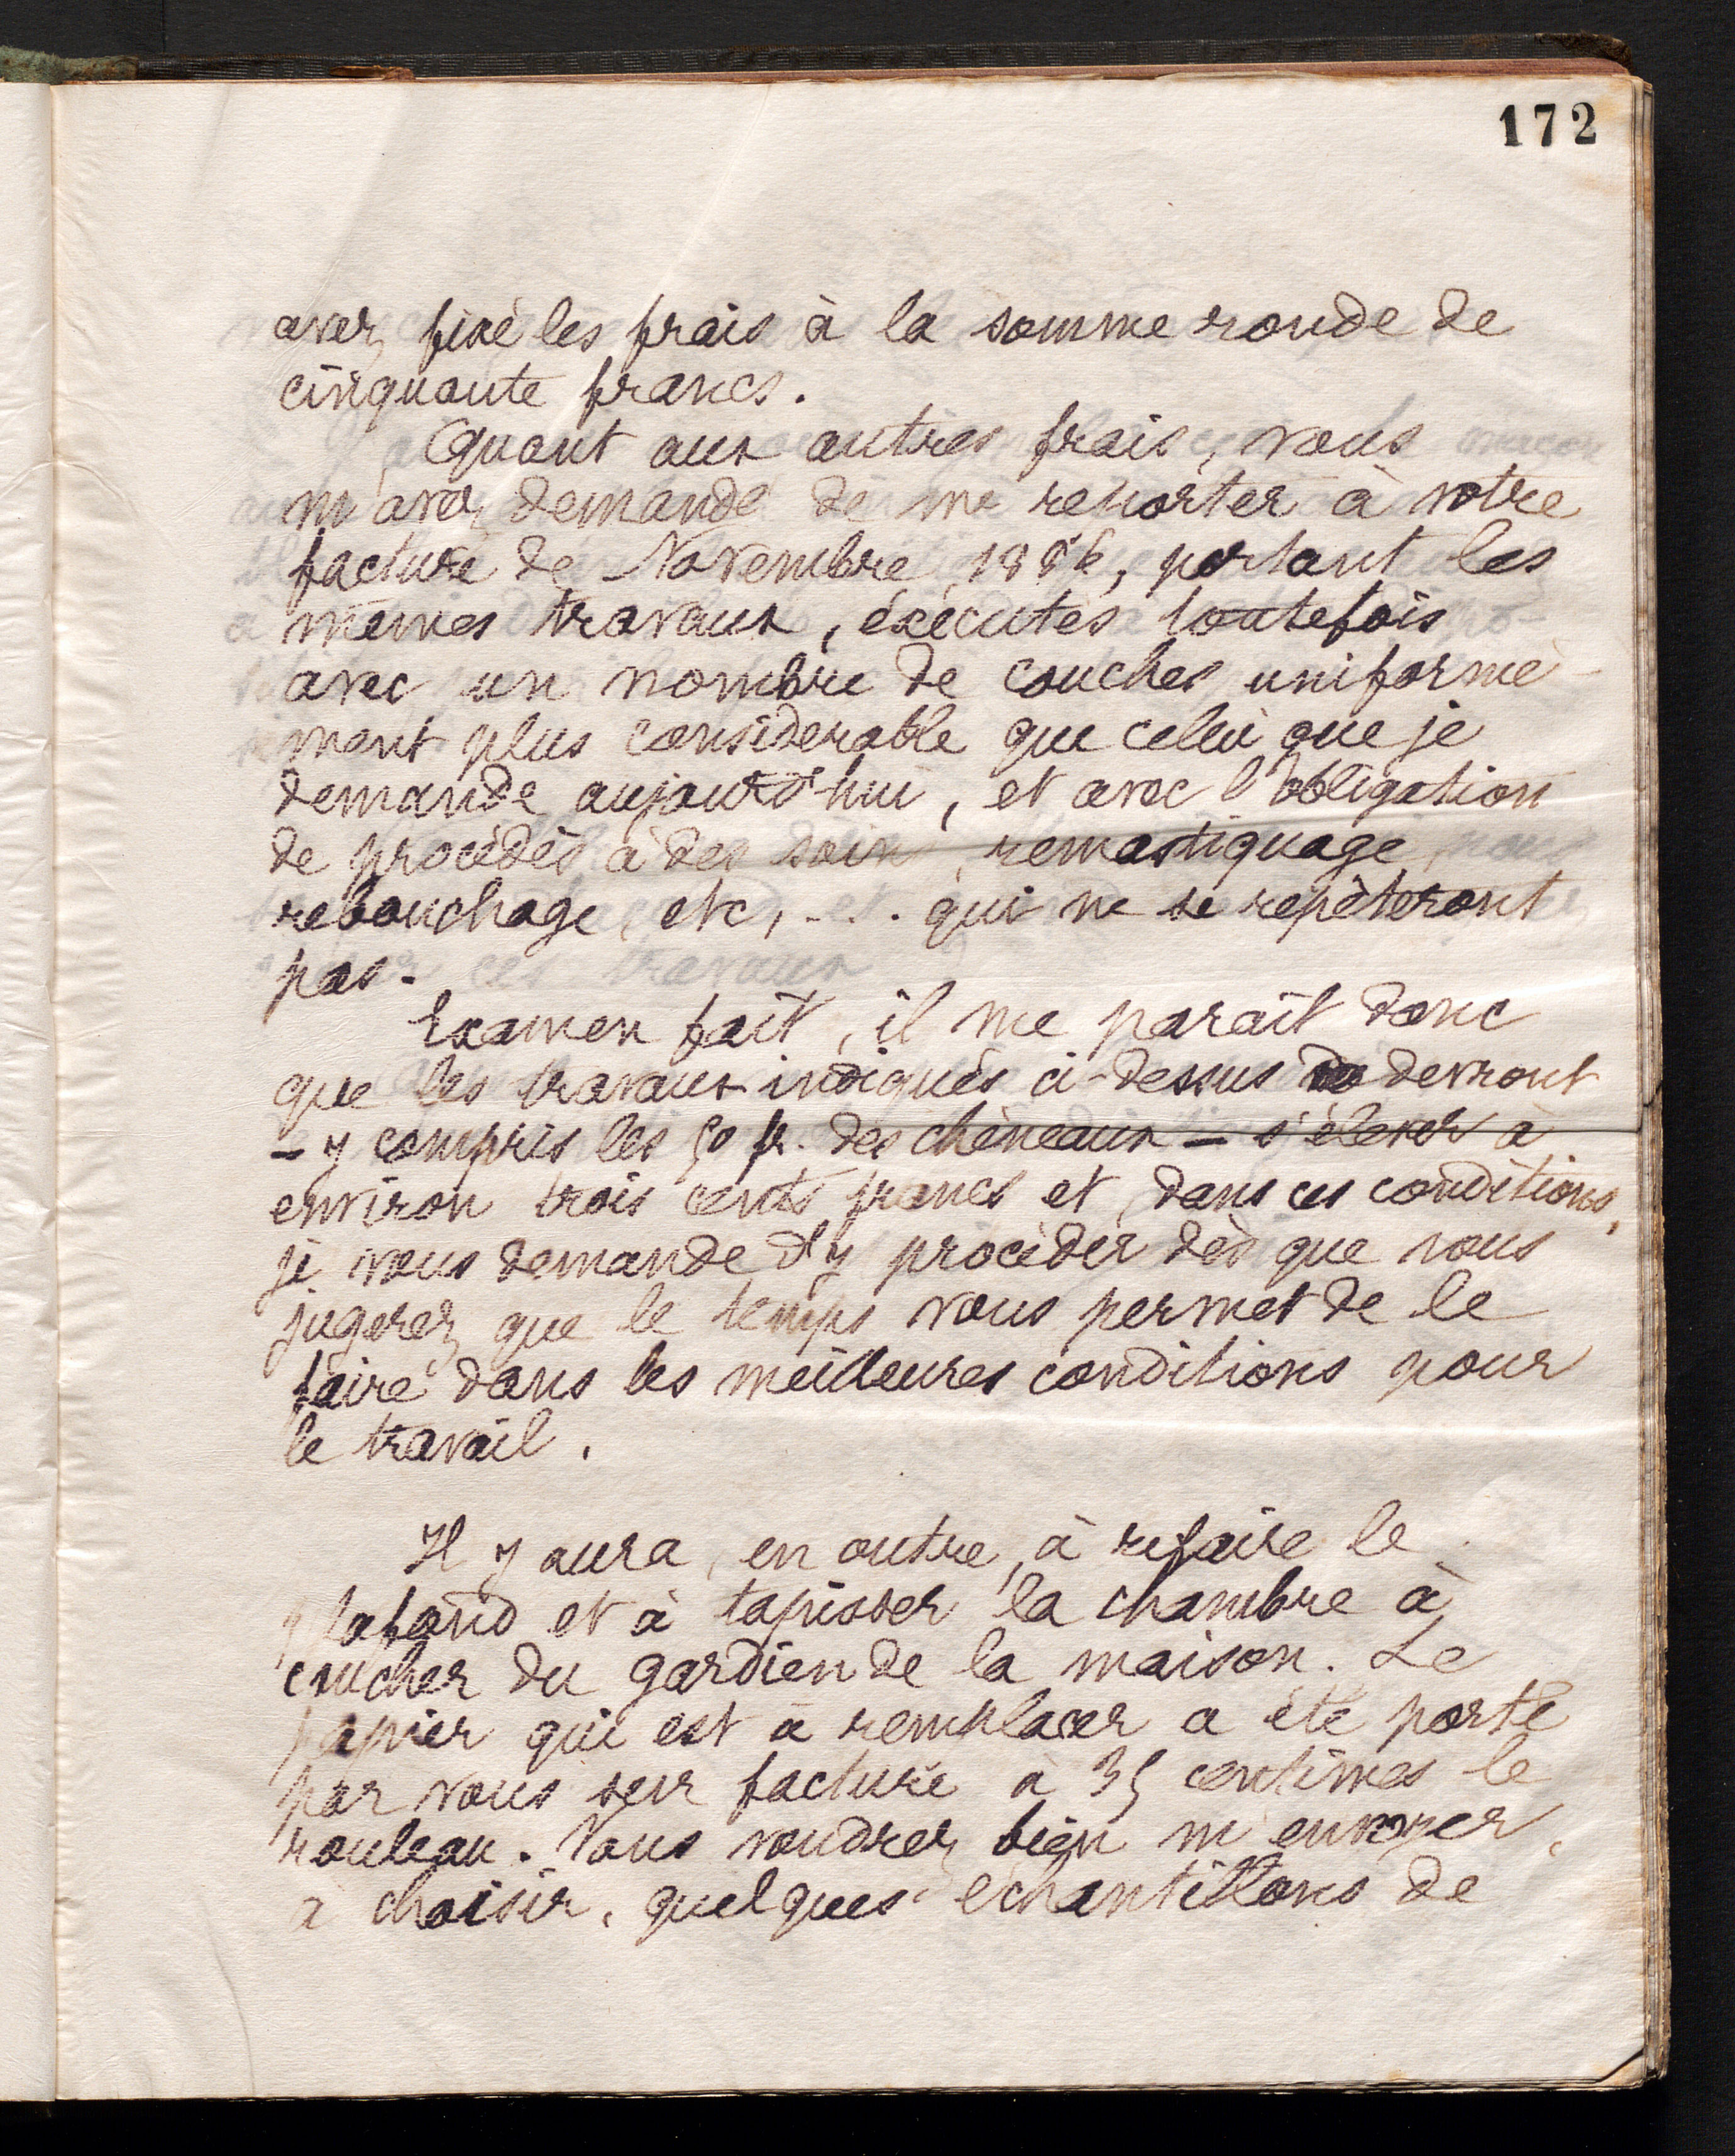 172
avez fixé les frais à la somme ronde de
cinquante francs.
Quant aux autres frais, vous
m'avez demandé de me reporter à votre
facture de Novembre 1886, portant les
mêmes travaux, exécutés toutefois
avec un nombre de couches uniformé-
ment plus considérable que celui que je
demande aujourd'hui, et avec l'obligation
de procédés à des soin, remastiquage,
rebouchage, etc, ... qui ne se repèteront
pas.
Examen fait, il me paraît donc
que les travaux indiqués ci-dessus devront
- y compris les 50 fr. des chéneaux - s'élever à
environ trois cents francs et, dans ces conditions,
je vous demande d'y procéder dès que vous
jugerez que le temps vous permet de le
faire dans les meilleures conditions pour
le travail.
Il y aura, en outre, à refaire le
plafond et à tapisser la chambre à
coucher du gardien de la maison. Le
papier qui est à remplacer a été porté
par vous sur facture à 35 centimes le
rouleau. Vous voudrez bien m'envoyer,
à choisir, quelques échantillons de